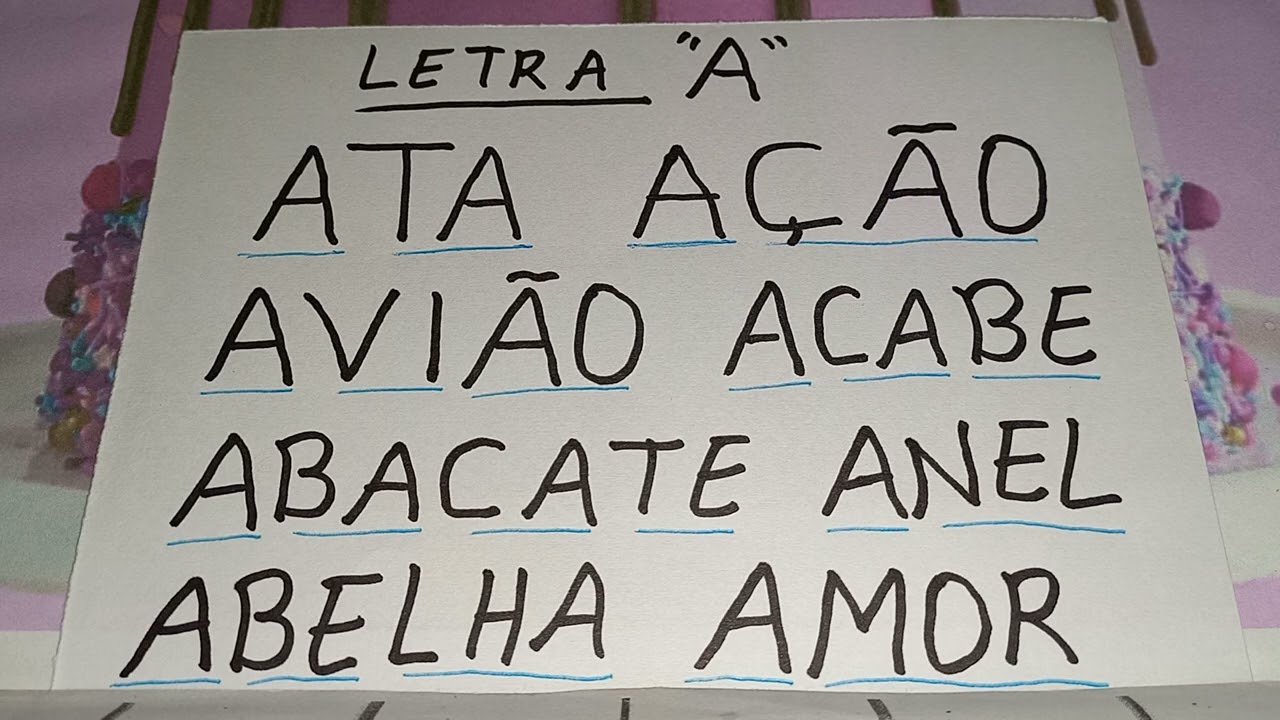 LETRA "A"
ATA AÇÃO
AVIÃO ACABE
ABACATE ANEL
ABELHA AMOR